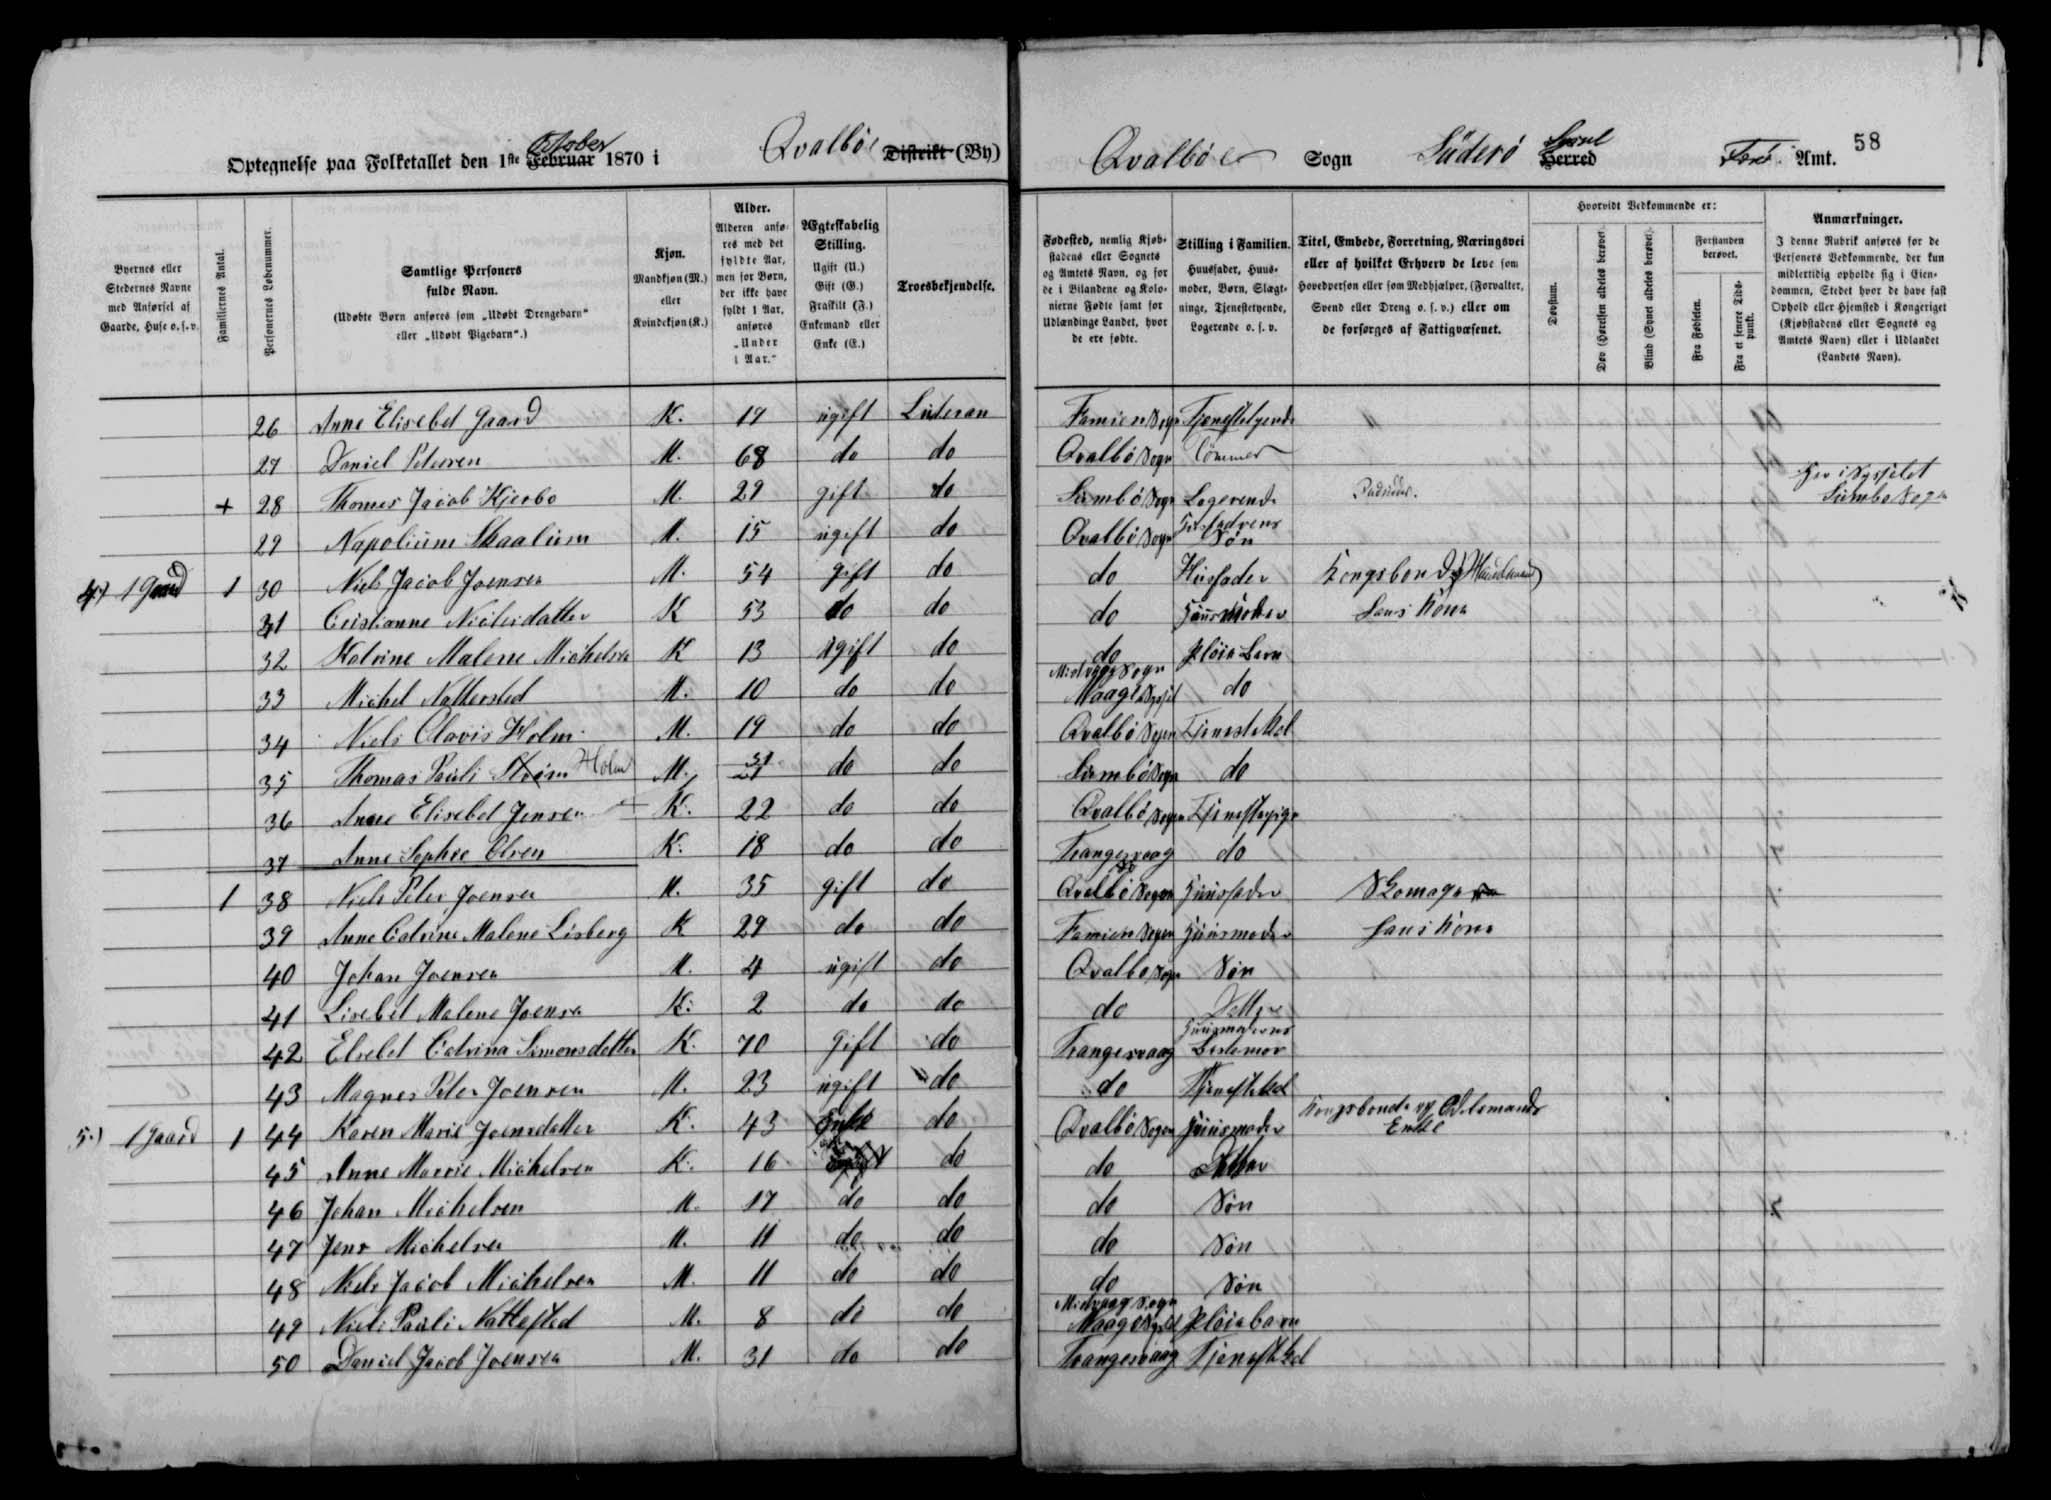 October
Optegnelse paa Folketallet den 1ste Februar 1870 i Qvalbøe Distrikt (By)
Qvalbøe Sogn Süderø Syssel Herred Færø Amt. 58
Byernes eller Stedernes Navne med Anførsel af Gaarde, Huse o. s. v.
Familiernes Antal.
Personernes Løbenummer.
Samtlige Personers fulde Navn.
(Udøbte Børn anføres som „Udøbt Drengebarn“ eller „Udøbt Pigebarn“.)
Kjøn.
Mandkjøn (M.) eller Kvindekjøn (K.)
Alder.
Alderen anføres med det fyldte Aar, men for Børn, der ikke have fyldt 1 Aar, anføres „Under 1 Aar.“
Ægteskabelig Stilling.
Ugift (U.) Gift (G.) Fraskilt (F.) Enkemand eller Enke (E.)
Troesbekjendelse.
Fødested, nemlig Kjøbstadens eller Sognets og Amtets Navn, og for de i Bilandene og Kolonierne Fødte samt for Udlændinge Landet, hvor de ere fødte.
Stilling i Familien.
Huusfader, Huusmoder, Børn, Slægtninge, Tjenestetyende, Logerende o. s. v.
Titel, Embede, Forretning, Næringsvei eller af hvilket Erhverv de leve som Hovedperson eller som Medhjælper, (Forvalter, Svend eller Dreng o. s. v.) eller om de forsørges af Fattigvæsenet.
Hvorvidt Vedkommende er:
Døvstum.
Døv (Hørelsen aldeles berøvet).
Blind (Synet aldeles berøvet).
Forstanden berøvet.
Fra Fødselen.
Fra et senere Tidspunkt.
Anmærkninger.
I denne Rubrik anføres for de Personers Vedkommende, der kun midlertidig opholde sig i Eiendommen, Stedet hvor de have fast Ophold eller Hjemsted i Kongeriget (Kjøbstadens eller Sognets og Amtets Navn) eller i Udlandet (Landets Navn).
26 Anne Elisebet Gaard K. 19 ugift Luteran Famien Sogn Tjenestetyende "
27 Daniel Petersen M. 68 do do Qvalbö Sogn
+ 28 Thomes Jacob Kjerbo M. 29 gift do Sumbö Sogn Logerende Sumbo Sogn
29 Napolium Skaalum M. 15 ugift do Qvalbö Sogn Søn
4.) 1 Gaard 1 30 Niels Jacob Joensen M. 54 gift do do Husfader Kongsbonde
31 Cristianne Nielsdatter K 53 do do do Huusmoder Hans Kone
32 Katrine Malene Michelsen K 13 ugift do do Pleiebarn
33 Michel Nattersted M. 10 do do Midvaag Sogn Vaagø Syssel do
34 Niels Clavis Holm M. 19 do do Qvalbö Sogn Tjenestekarl
35 Thomas Pauli Holm M. 31 do do Sumbö Sogn do
36 Anne Elisebet Jensen K. 22 do do Qvalbö Sogn Tjenestepige
37 Anne Sophie Olsen K. 18 do do Trangesvaag do
1 38 Niels Peter Joensen M. 35 gift do Qvalbö Sogn Huusfader Skomager
39 Anne Catrine Malene Lisberg K 29 do do Famien Sogn Huusmoder Hans Kone
40 Johan Joensen M. 4 ugift do Qvalbo Sogn Søn
41 Lisebet Malene Joensen K. 2 do do do Datter
42 Elsebet Catrina Simonsdatter K. 70 Gift do Trangesvaag Bestemor
43 Magnes Peter Joensen M. 23 ugift do do Tjenestekarl
5.) 1 Gaard 1 44 Karen Marie Joensdatter K. 43 Enke do Qvalbö Sogn Huusmoder Kongsbonde og Odelsmands Enke
45 Anne Marrie Michelsen K. 16 do do Datter
46 Johan Michelsen M. 17 do do do Søn
47 Jens Michelsen M. 11 do do do Søn
48 Niels Jacob Michelsen M. 11 do do do Søn
49 Niels Pauli Nattested M. 8 do do Midvaag Sogn Vaagø Syssel Pleiebarn
50 Daniel Jacob Joensen M. 31 do do Trangesvaag Tjenestekarl